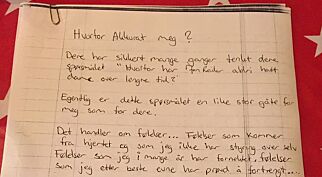 Hvorfor Akkurat meg?
Dere har sikkert mange ganger tenkt dere
spørsmålet "Hvorfor har aldri hatt
dame over lengre tid?"
Egentlig er dette spørsmålet en like stor gåte for
meg som for dere.
Det handler om følelser... Følelser som kommer
fra hjertet og som jeg ikke har styring over selv
Følelser som jeg i mange år har fornektet, følelser
som jeg etter beste evne har prøvd å fortrengt....